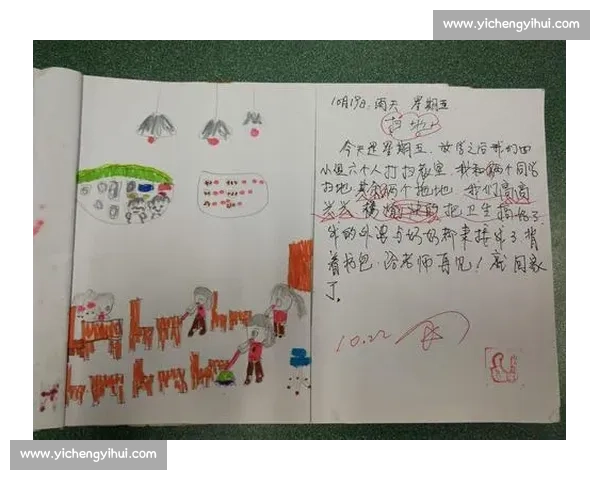 www.yichengyihui.com
10月19日 雨天 星期五
扫地
今天是星期五,放学之后我们四
小组六个人打扫教室,我和两个同学
扫地,其余两个拖地,我们高高
兴兴 的把卫生搞好了,
外婆与奶奶都来接我了,背
着书包,给老师再见!就回家
了。
10.22
阅
www.yichengyihui.com